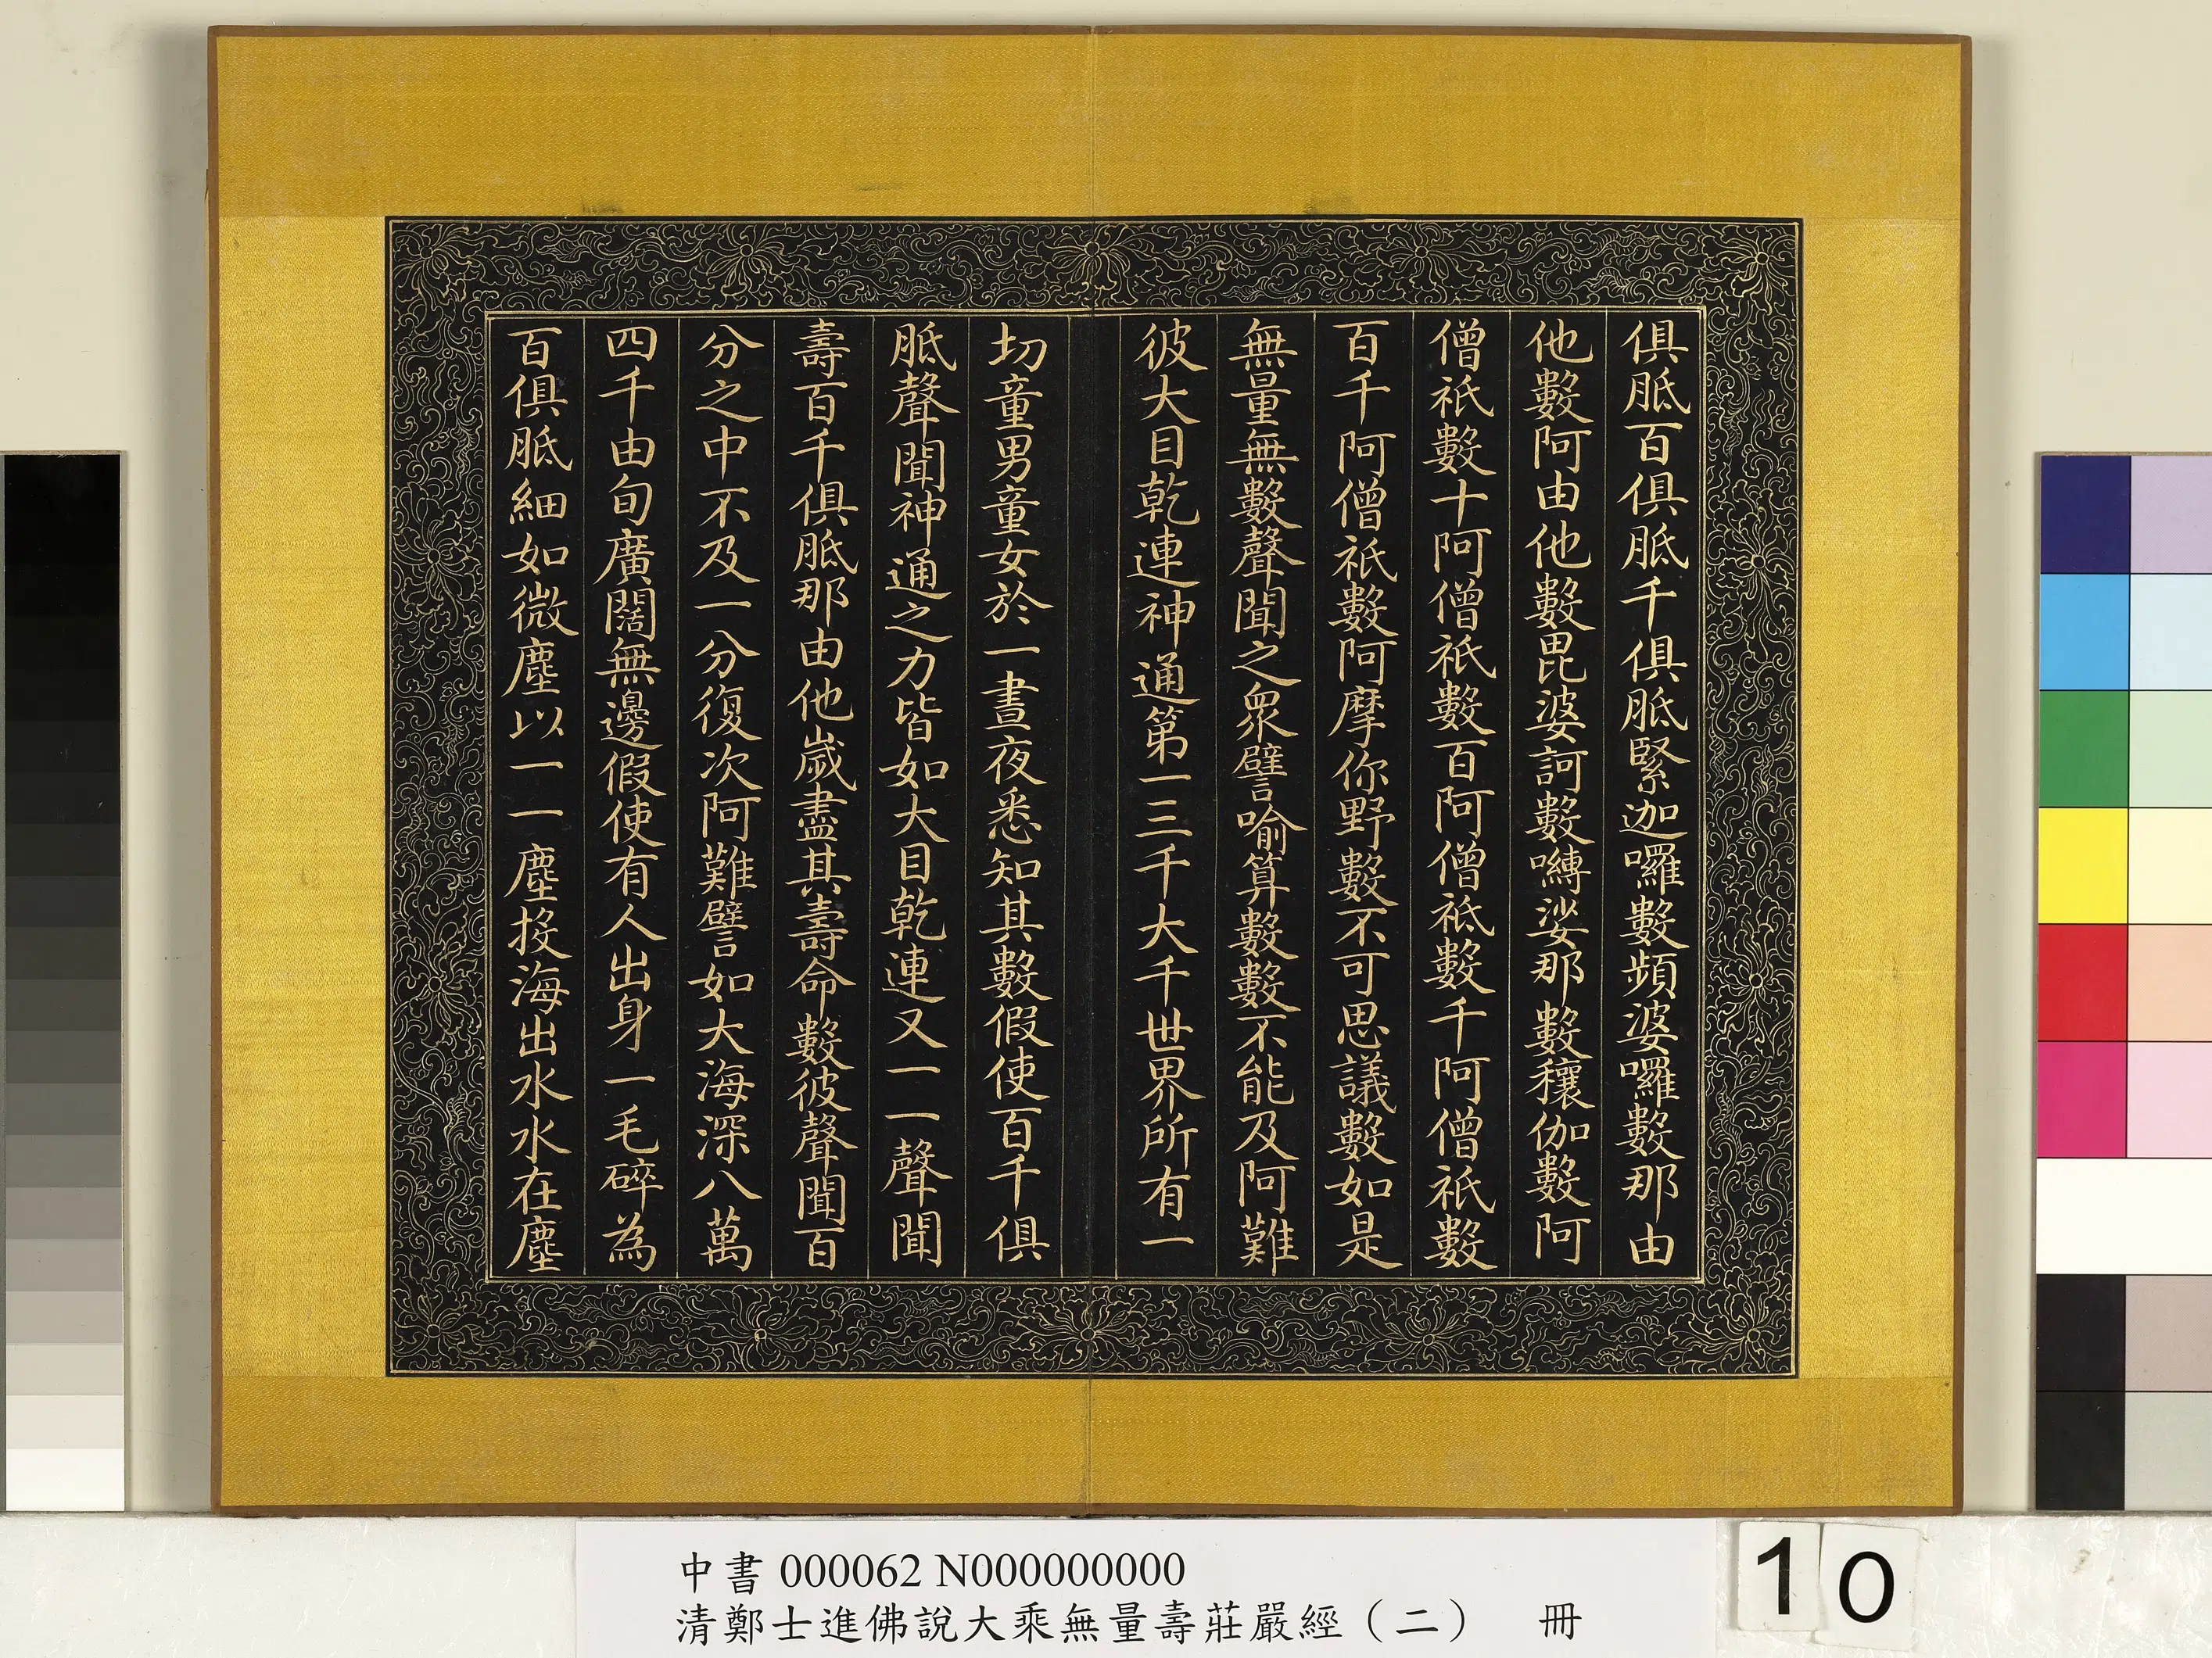 俱胝百俱胝千俱胝緊迦囉數頻婆囉數那由
他數阿由他數毘婆訶數嚩娑那數穰伽數阿
僧祇數十阿僧祇數百阿僧祇數千阿僧祇數
百千阿僧祇數阿摩你野數不可思議數如是
無量無數聲聞之眾譬喻算數數不能及阿難
彼大目乾連神通第一三千大千世界所有一
切童男童女於一晝夜悉知其數假使百千俱
胝聲聞神通之力皆如大目乾連又一一聲聞
壽百千俱胝那由他歲盡其壽命數彼聲聞百
分之中不及一分復次阿難譬如大海深八萬
四千由旬廣闊無邊假使有人出身一毛碎為
百俱胝細如微塵以一一塵投海出水水在塵
中書 000062 N000000000
清鄭士進佛說大乘無量壽莊嚴經（二） 冊
10